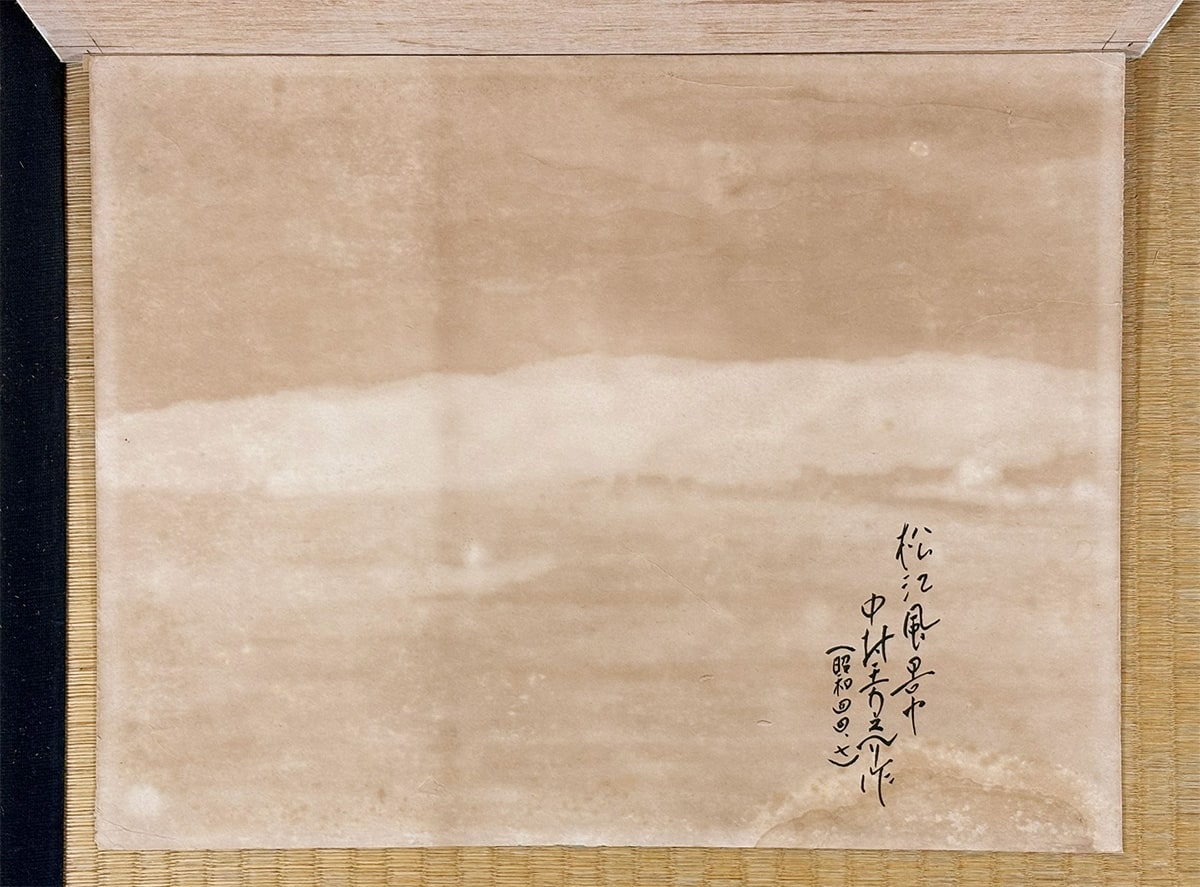 松江風景
中村芳之介作
(昭和四四、七)